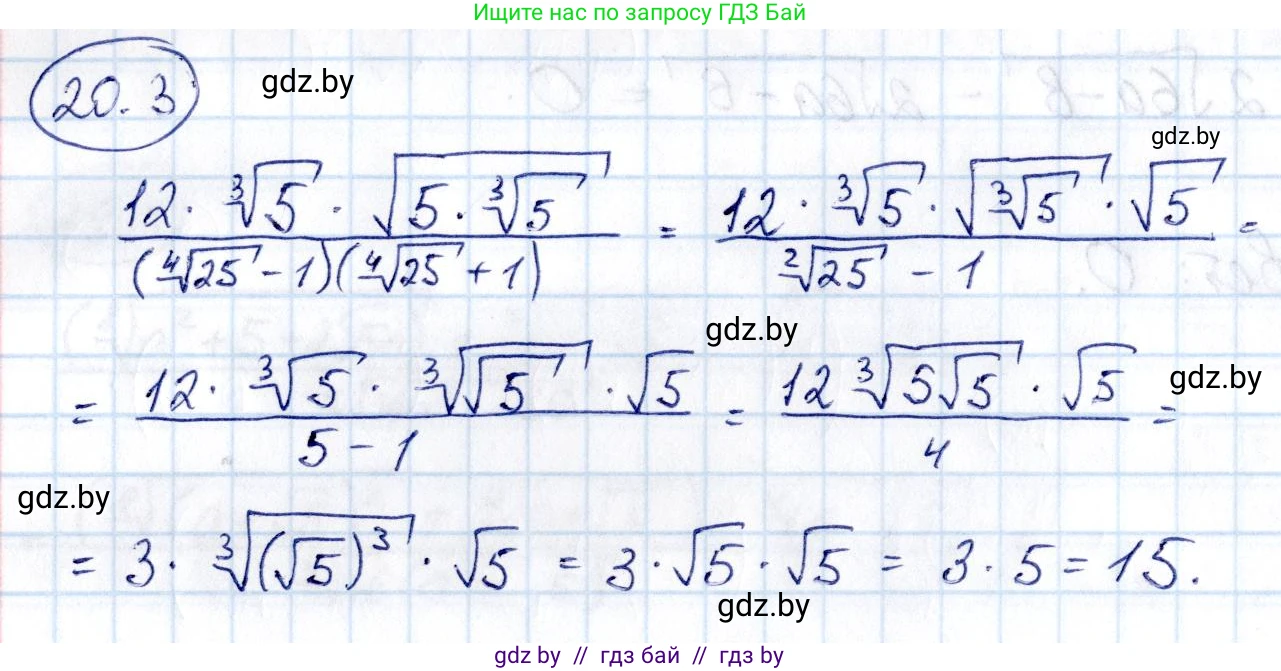 Ищите нас по запросу ГДЗ Бай
20.3
gdz.by
gdz.by
12 · ∛5 · √(5 · ∛5) / (∜25 - 1)(∜25 + 1) = 12 · ∛5 · √(∛5) · √5 / ²√25 - 1 =
gdz.by
= 12 · ∛5 · ∛(√5) · √5 / 5 - 1 = 12 ∛(5√5) · √5 / 4 =
gdz.by
gdz.by
= 3 · ∛((√5)³) · √5 = 3 · √5 · √5 = 3 · 5 = 15.
gdz.by
gdz by // гдз бай // гдз by